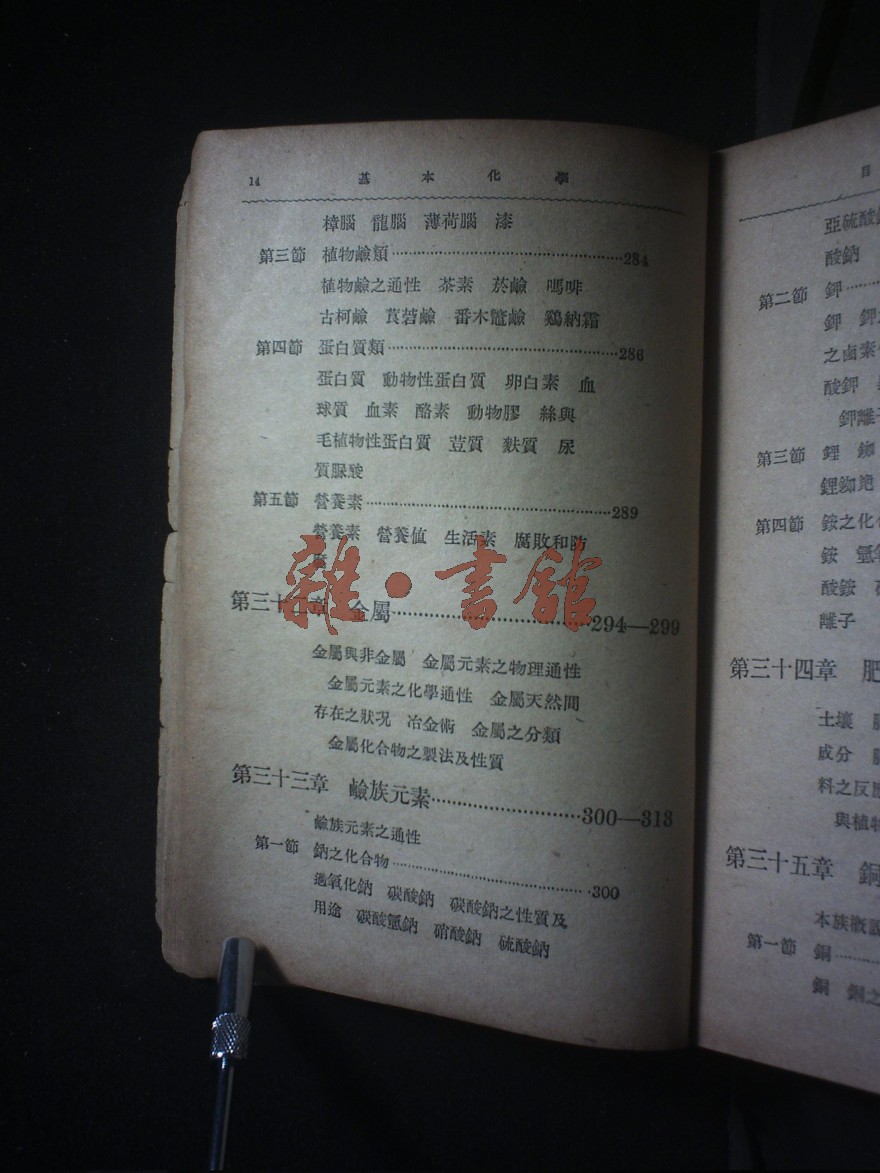 14 基本化學
樟腦 龍腦 薄荷腦 漆
第三節 植物鹼類……284
植物鹼之通性 茶素 菸鹼 嗎啡
古柯鹼 莨菪鹼 番木鼈鹼 鷄納霜
第四節 蛋白質類……286
蛋白質 動物性蛋白質 卵白素 血
球質 血素 酪素 動物膠 絲與
毛植物性蛋白質 荳質 麩質 尿
質脲酸
第五節 營養素……289
營養素 營養値 生活素 腐敗和防
腐
第三十二章 金屬……294—299
金屬與非金屬 金屬元素之物理通性
金屬元素之化學通性 金屬天然間
存在之狀况 冶金術 金屬之分類
金屬化合物之製法及性質
第三十三章 鹼族元素……300—313
鹼族元素之通性
第一節 鈉之化合物……300
過氧化鈉 碳酸鈉 碳酸鈉之性質及
用途 碳酸氫鈉 硝酸鈉 硫酸鈉
雜·書館
目
亞硫酸
酸鈉
第二節 鉀……
鉀 鉀之
之鹵素
酸鉀
鉀離子
第三節 鋰 銣
鋰銣銫
第四節 銨之化
銨 氫氧
酸銨
離子
第三十四章 肥
土壤
成分
料之反應
與植物
第三十五章 銅
本族概說
第一節 銅……
銅 銅之